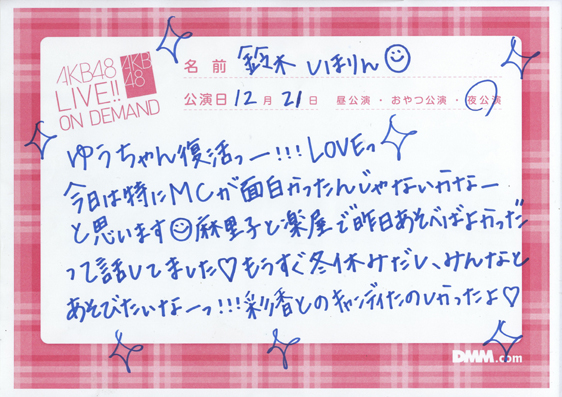 AKB48
LIVE!!
ON DEMAND
AKB
48
名前 鈴木しほりん
公演日 12月21日 昼公演・おやつ公演・夜公演
ゆうちゃん復活っー!!!LOVEっ
今日は特にMCが面白かったんじゃないかなー
と思います麻里子と楽屋で昨日あそべばよかっだ
って話してました♡もうすぐ冬休みだし、みんなと
あそびたいなーっ!!!彩香とのキャンディたのしかったよ♡
DMM.com